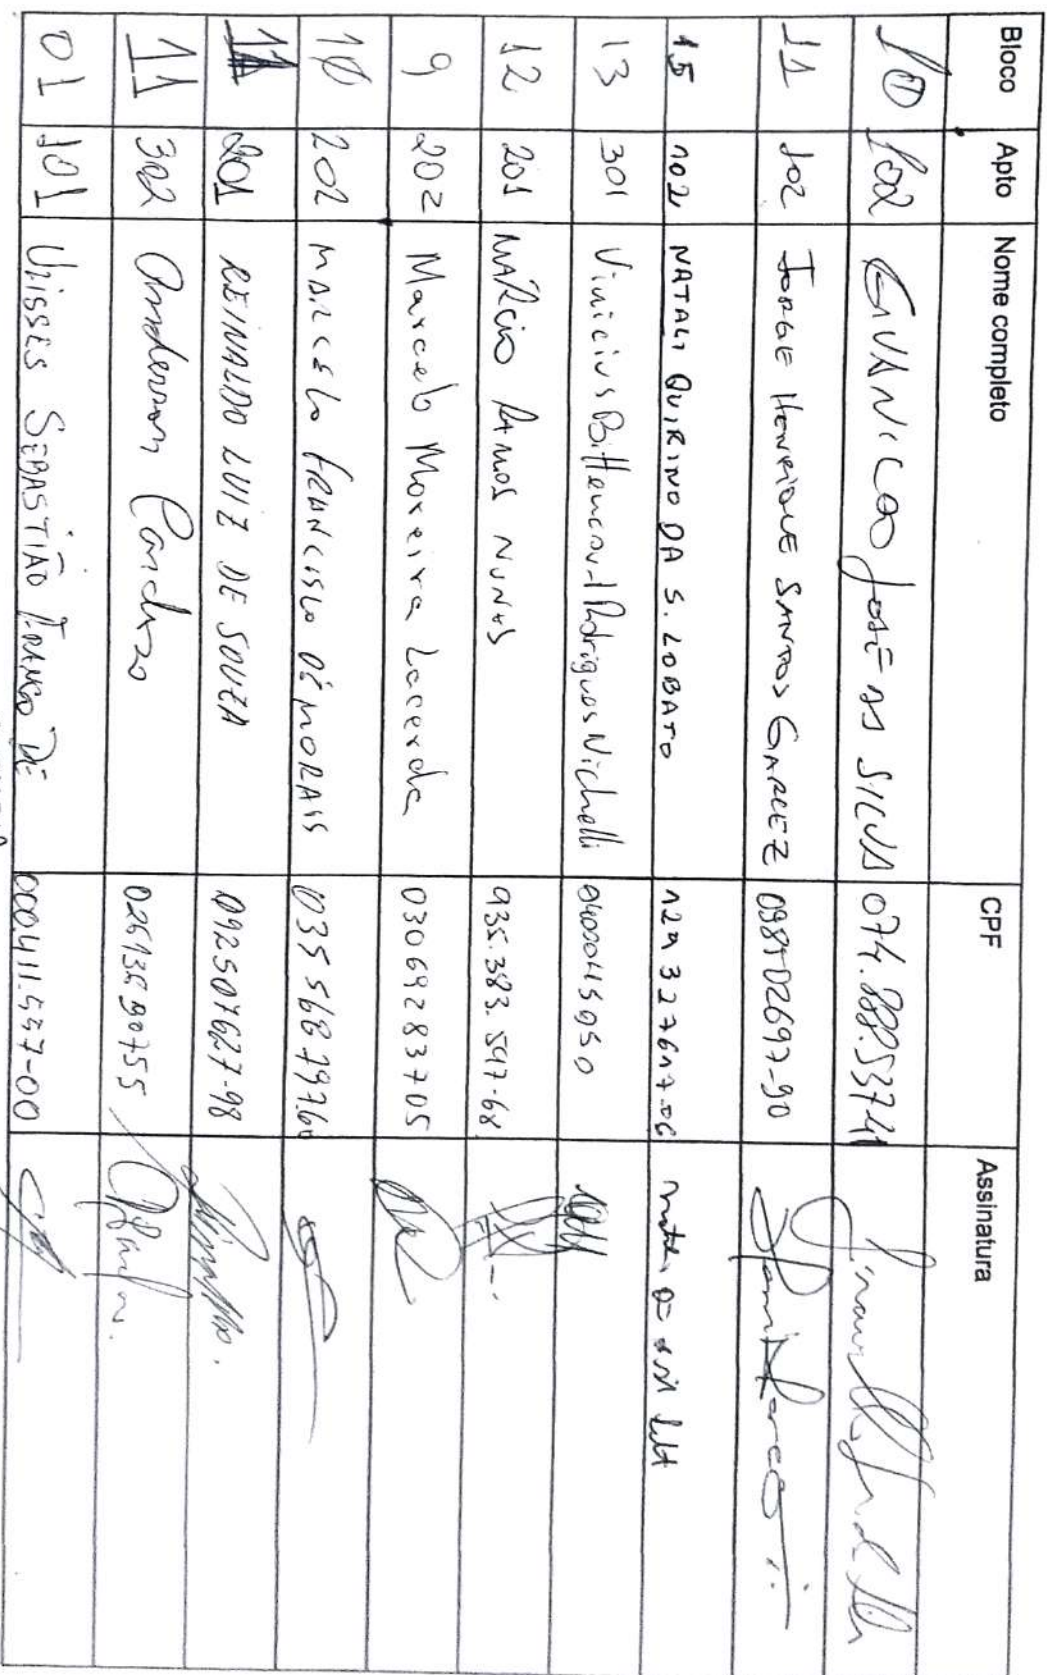 Bloco Apto Nome completo CPF Assinatura
10 102 GIVANICDO JOSÉ DA SILVA 074.888.537-41
11 102 JORGE HENRIQUE SANTOS GARCEZ 098102697-90
15 102 NATALI QUIRINO DA S. LOBATO 124 327617.06
13 301 Vinicius Bittencourt Rodrigues Nichelli 0400045950
12 201 MÁRCIO RAMOS NUNES 935.383.597-68
9 202 Marcelo Moreira Lacerda 03069283705
10 202 MARCELO FRANCISCO DE MORAIS 035568797.60
11 201 REINALDO LUIZ DE SOUZA 092507627-98
11 302 Anderson Cardozo 02613690755
01 101 ULISSES SEBASTIÃO FRANCO DE 000.411.537-00